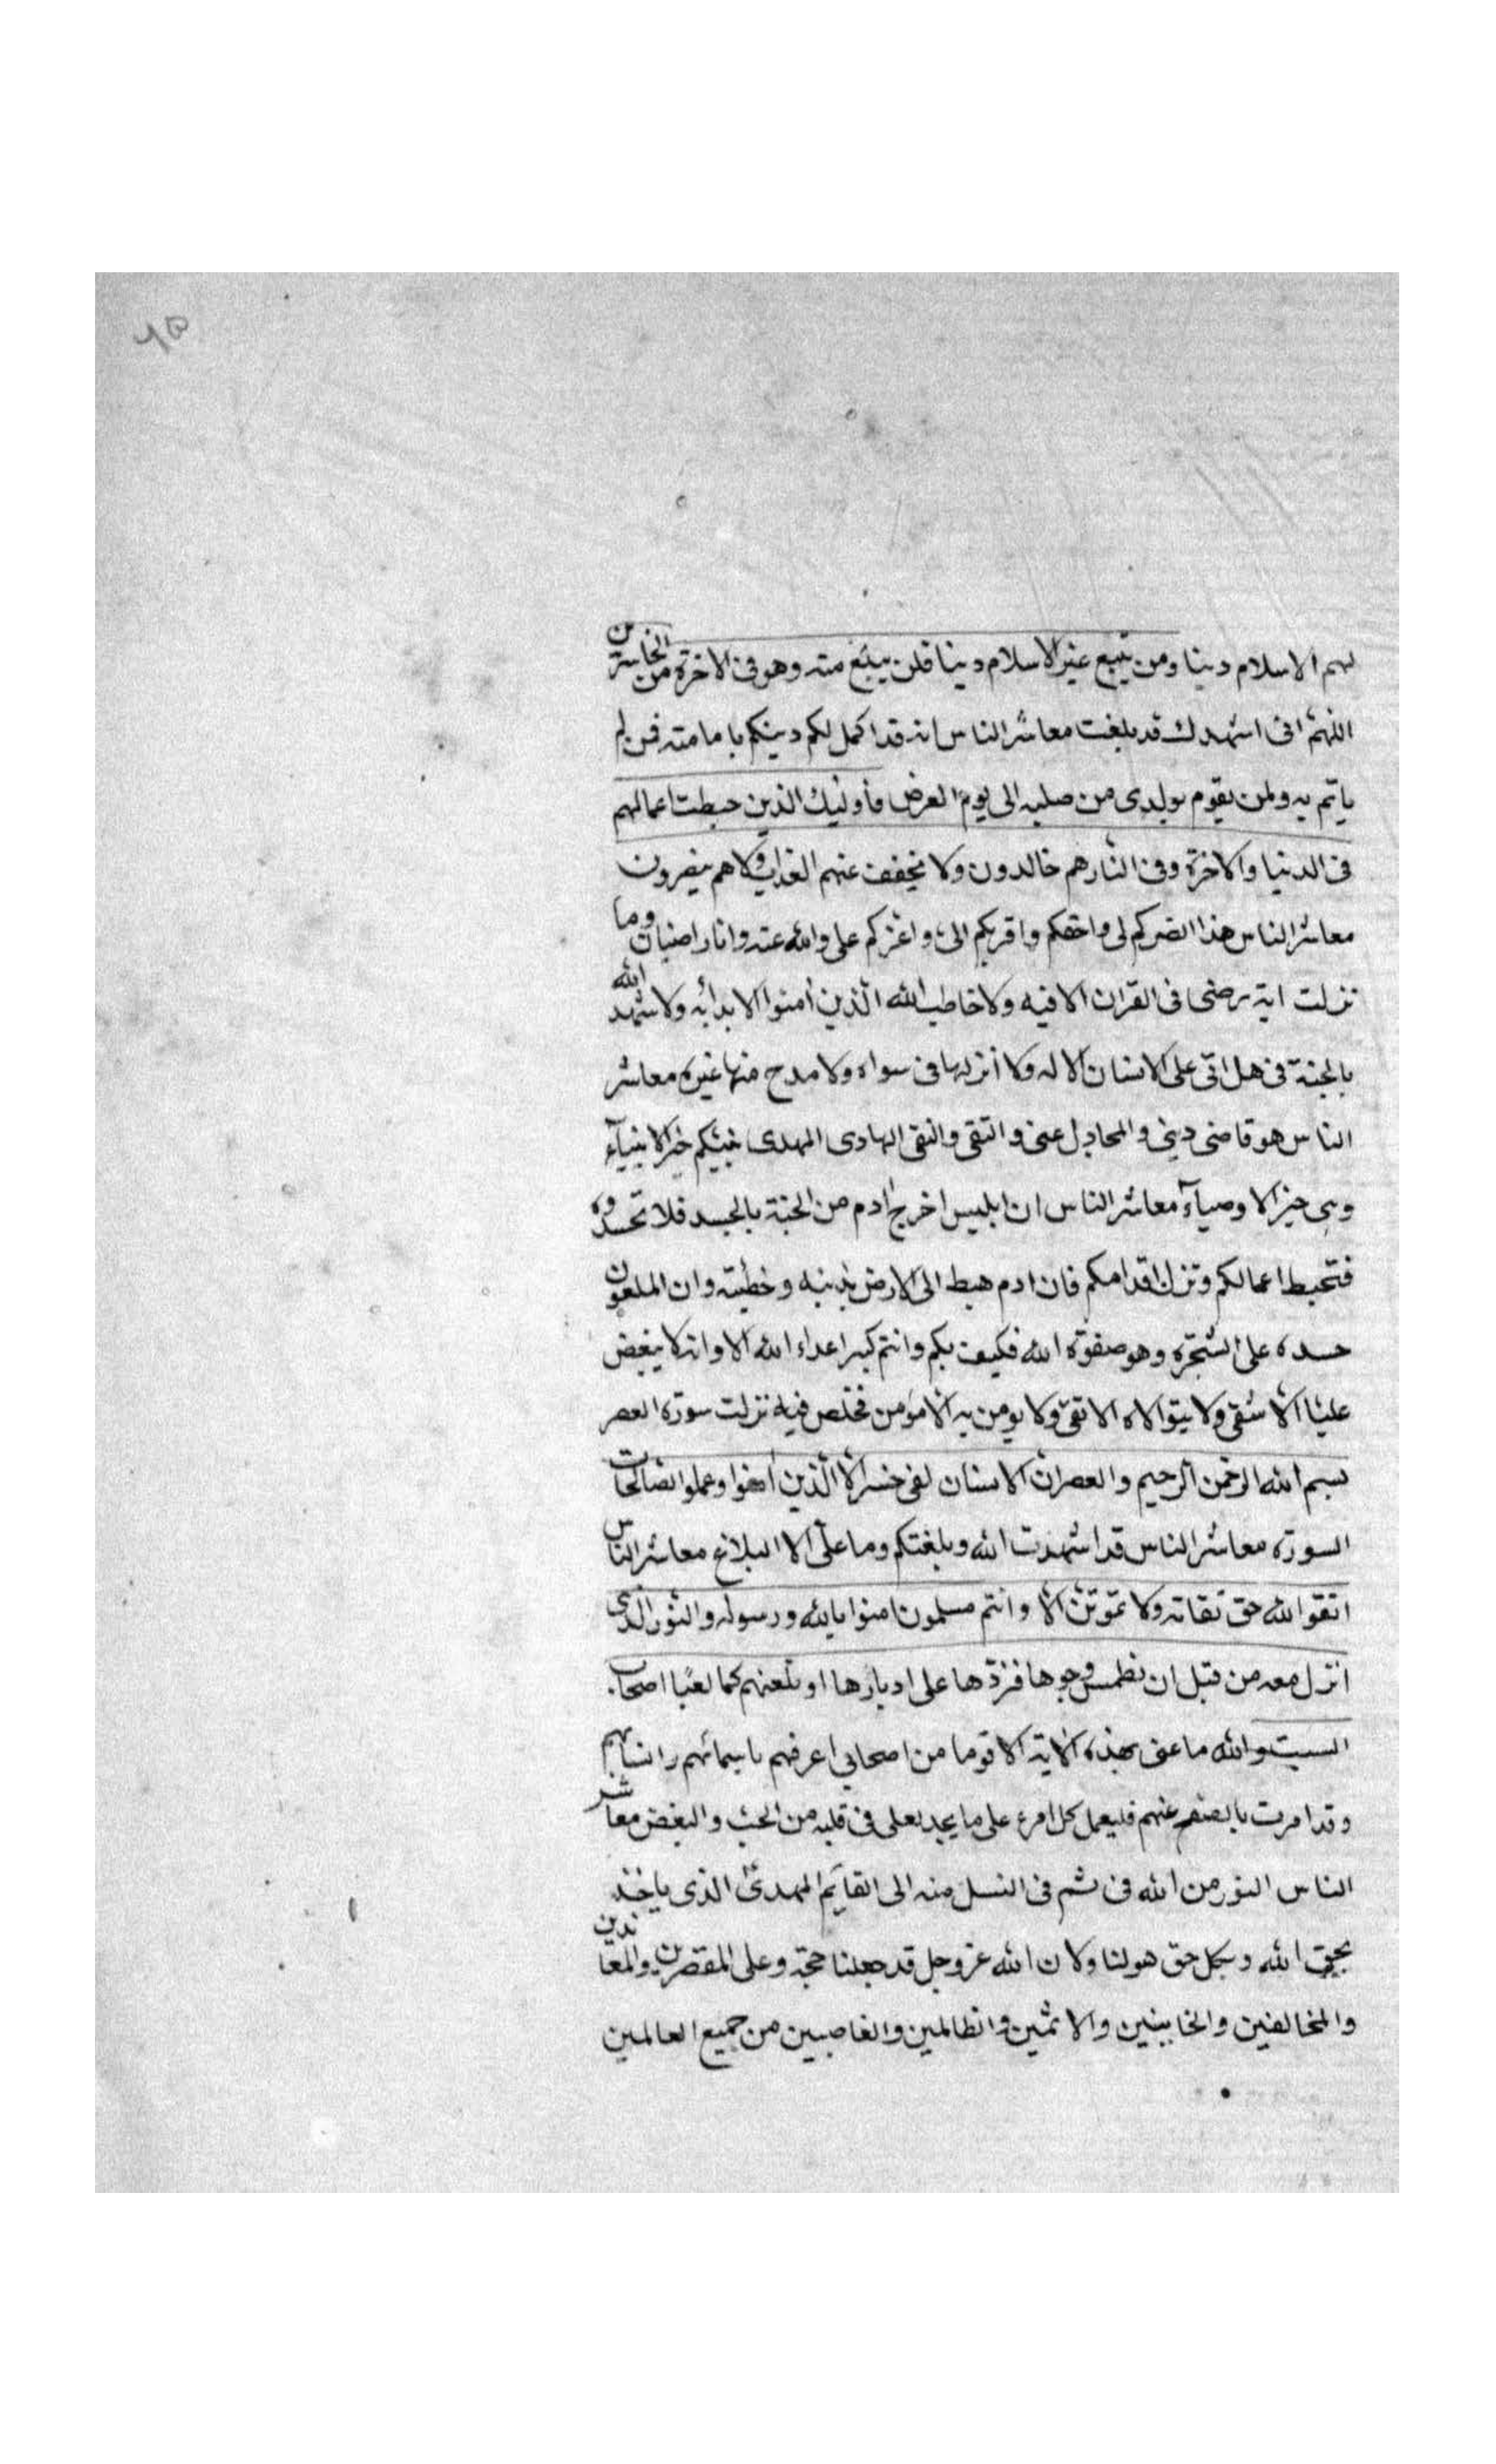 ٦٥
لهم الاسلام دينا ومن يتبع غير الاسلام دينا فلن يبتغ منه وهو فى الاخرة من الخاسرين
اللهم انى استهدك قد بلغت معاشر الناس انه قد اكمل لكم دينكم بامامته فمن لم
ياتم به ولمن يقوم بولدى من صلبه الى يوم العرض فأوليك الذين حبطت اعمالهم
فى الدنيا والاخرة وفى النار هم خالدون ولا يخفف عنهم العذاب ولا هم ينصرون
معاشر الناس هذا انصركم لى واحقكم واقربكم الى واعزكم على والله عنه وانا راضيان وما
نزلت اية رضى فى القران الا فيه ولا خاطب الله الذين امنوا الا بدأ به ولا شهد الله
بالجنة فى هل اتى على الانسان الا له ولا أنزلها فى سواه ولا مدح منها غيره معاشر
الناس هو قاضى دينى والمجادل عنى والتقى والنقى الهادى المهدى نبيكم خير الانبيآء
وهى خير الاوصيآء معاشر الناس ان ابليس اخرج ادم من الجنة بالحسد فلا تحسدوه
فتحبط اعمالكم وتزل اقدامكم فان ادم هبط الى الارض بذنبه وخطيته وان الملعون
حسده على الشجرة وهو صفوة الله فكيف بكم وانتم كبر اعداء الله الا وانه لا يبغض
عليا الا شقى ولا يتوالاه الا تقى ولا يومن به الا مؤمن مخلص فيه نزلت سورة العصر
بسم الله الرحمن الرحيم والعصر ان الانسان لفى خسر الا الذين امنوا وعملوا الصالحات
السورة معاشر الناس قد اشهدت الله وبلغتكم وما على الا البلاغ معاشر الناس
اتقوا الله حق تقاته ولا تموتن الا وانتم مسلمون امنوا بالله ورسوله والنور الذى
انزل معه من قبل ان نطمس وجوها فنردها على ادبارها او نلعنهم كما لعنا اصحاب
السبت والله ما عنى بهذه الاية الا قوما من اصحابى اعرفهم باسمائهم وانسابهم
وقد امرت بالصفح عنهم فليعمل كل امرء على ما يجد لعلى فى قلبه من الحب والبغض معاشر
الناس النور من الله فى ثم فى النسل منه الى القآيم المهدى الذى ياخذ
بحق الله وبكل حق هو لنا ولان الله عز وجل قد جعلنا حجة وعلى المقصرين والمعاندين
والمخالفين والخاينين والاثمين والظالمين والغاصبين من جميع العالمين